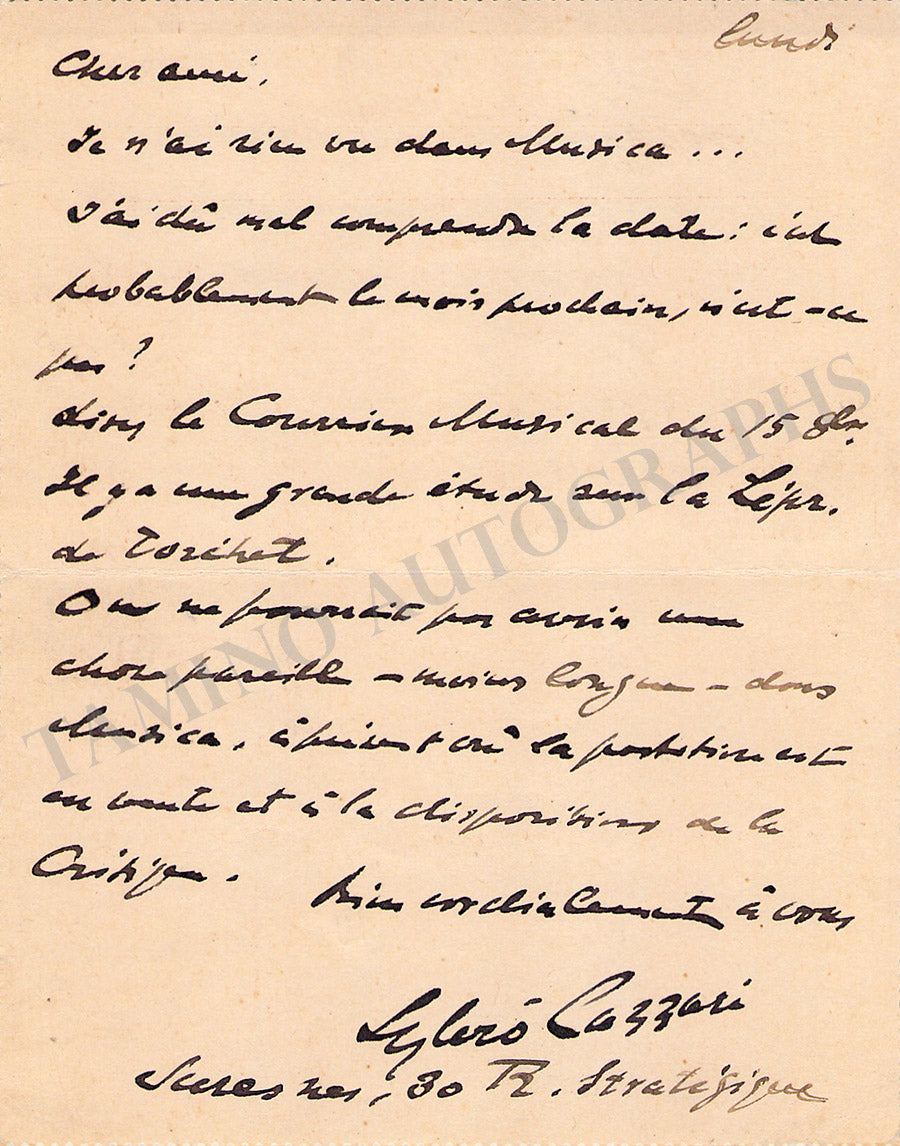 lundi
Cher ami,
Je n'ai rien vu dans Musica...
J'ai dû mal comprendre la date : c'est
probablement le mois prochain, n'est-ce
pas ?
Lisez le Courrier Musical du 15 8bre.
Il y a une grande étude sur la Lépr.
de Torchet.
On ne pourrait pas avoir une
chose pareille - moins longue - dans
Musica, à présent où la partition est
en vente et à la disposition de la
Critique.
Bien cordialement à vous
Sylvio Lazzari
Suresnes, 30 R. Stratégique
TAMINO AUTOGRAPHS